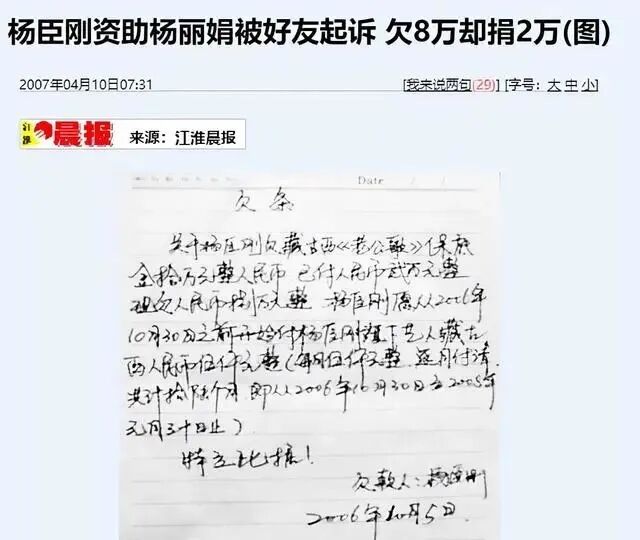 杨臣刚资助杨丽娟被好友起诉 欠8万却捐2万(图)
2007年04月10日07:31 [我来说两句(29)] [字号：大 中 小]
江淮晨报 来源：江淮晨报
Date
欠条
关于杨臣刚欠藏古西《老公歌》保底
金拾万元整人民币 已付人民币贰万元整
现欠人民币捌万元整 杨臣刚愿从2006年
10月30日之前开始付杨臣刚旗下艺人藏古
西人民币伍仟元整(每月伍仟元整 逐月付清
共计拾陆个月 即从2006年10月30日至2008年
元月三十日止)
特立此据！
欠款人：杨臣刚
2006年10月5日